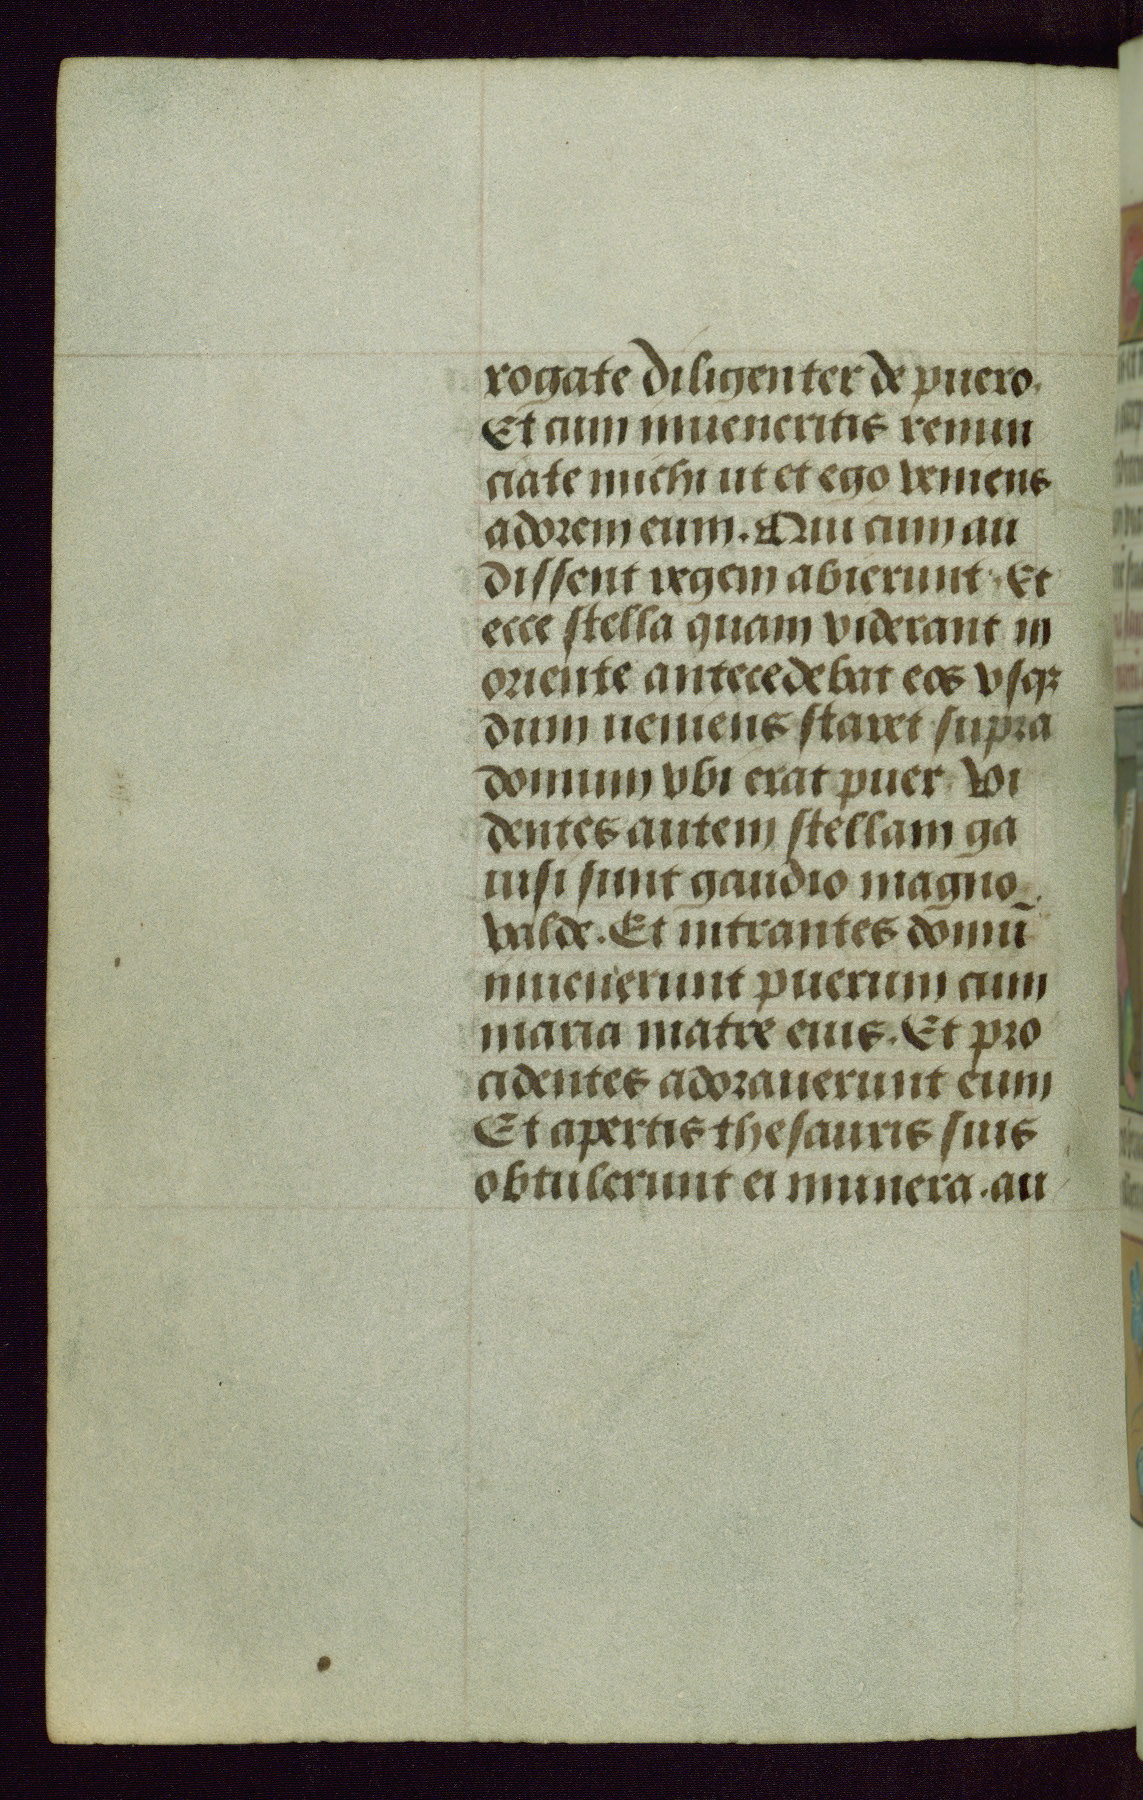 rogate diligenter de puero.
Et cum inueneritis renun
ciate michi ut et ego veniens
adorem eum. Qui cum au
dissent regem abierunt. Et
ecce stella quam viderant in
oriente antecedebat eos vsqꝫ
dum ueniens staret supra
domum vbi erat puer. Vi
dentes autem stellam ga
uisi sunt gaudio magno
valde. Et intrantes domū
inuenerunt puerum cum
maria matre eius. Et pro
cidentes adorauerunt eum
Et apertis thesauris suis
obtulerunt ei munera. au